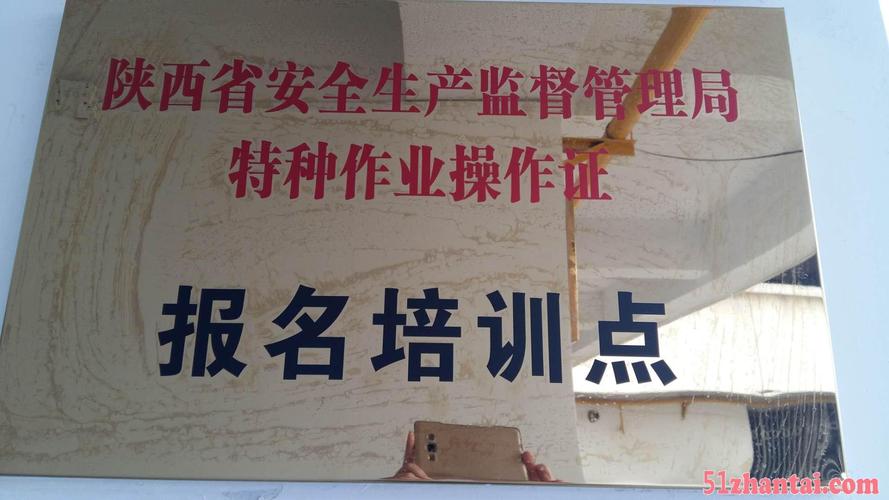 陕西省安全生产监督管理局
特种作业操作证
报名培训点
51zhantai.com